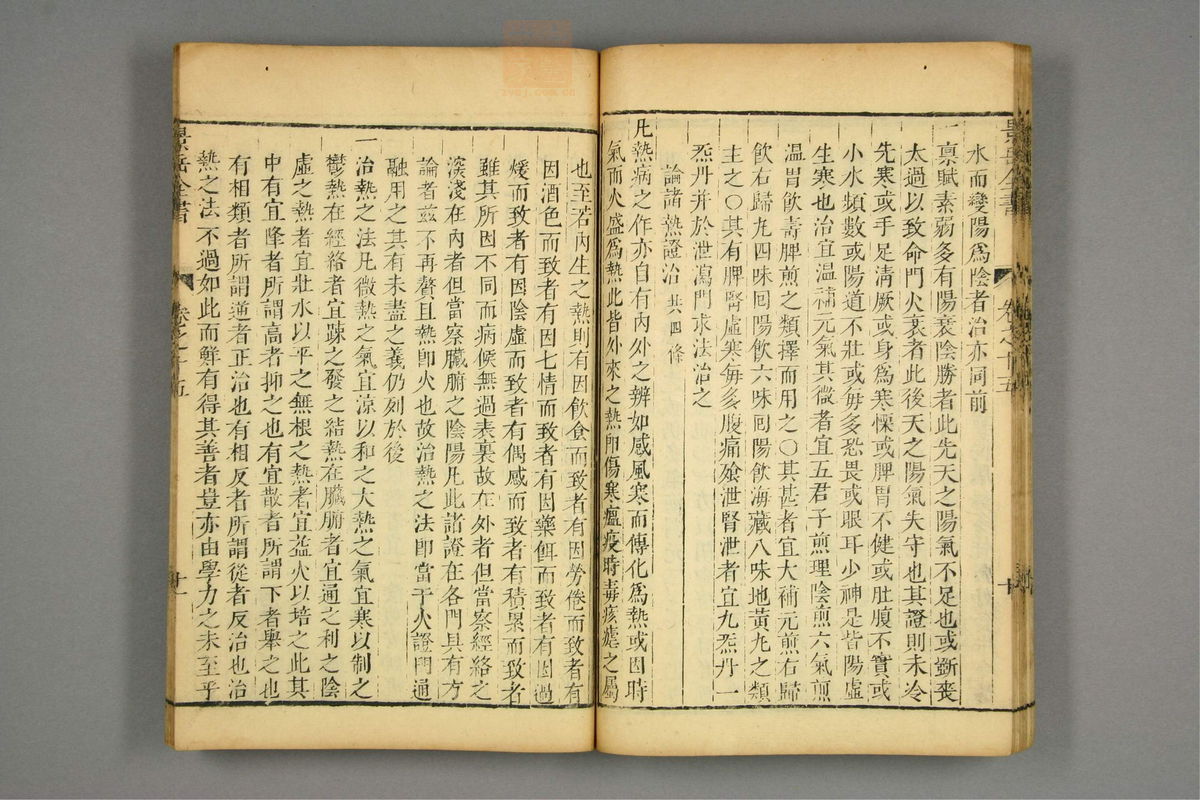 水而變陽爲陰者治亦同前
一禀賦素弱多有陽衰陰勝者此先天之陽氣不足也或斵喪
太過以致命門火衰者此後天之陽氣失守也其證則未冷
先寒或手足清厥或身爲寒慄或脾胃不健或肚腹不實或
小水頻數或陽道不壯或每多恐畏或眼耳少神是皆陽虛
生寒也治宜温補元氣其微者宜五君子煎理陰煎六氣煎
温胃飲壽脾煎之類擇而用之〇其甚者宜大補元煎右歸
飲右歸九四味囘陽飲六味囘陽飲海藏八味地黄九之類
主之〇其有脾腎虛寒每多腹痛飱泄腎泄者宜九炁丹一
炁丹并於泄瀉門求法治之
論諸熱證治 共四條
凡熱病之作亦自有內外之辨如感風寒而傳化爲熱或因時
氣而火盛爲熱此皆外來之熱卽傷寒瘟疫時毒痎瘧之屬
也至若內生之熱則有因飲食而致者有因勞倦而致者有
因酒色而致者有因七情而致者有因藥餌而致者有因過
煖而致者有因陰虛而致者有偶感而致者有積累而致者
雖其所因不同而病候無過表裏故在外者但當察經絡之
深淺在內者但當察臟腑之陰陽凡此諸證在各門具有方
論者兹不再贅且熱卽火也故治熱之法卽當于火證門通
融用之其有未盡之義仍列於後
一治熱之法凡微熱之氣宜凉以和之大熱之氣宜寒以制之
鬱熱在經絡者宜踈之發之結熱在臟腑者宜通之利之陰
虛之熱者宜壯水以平之無根之熱者宜益火以培之此其
中有宜降者所謂高者抑之也有宜散者所謂下者舉之也
有相類者所謂逆者正治也有相反者所謂從者反治也治
熱之法不過如此而鮮有得其善者豈亦由學力之未至乎
景岳全書
卷之十五
十一